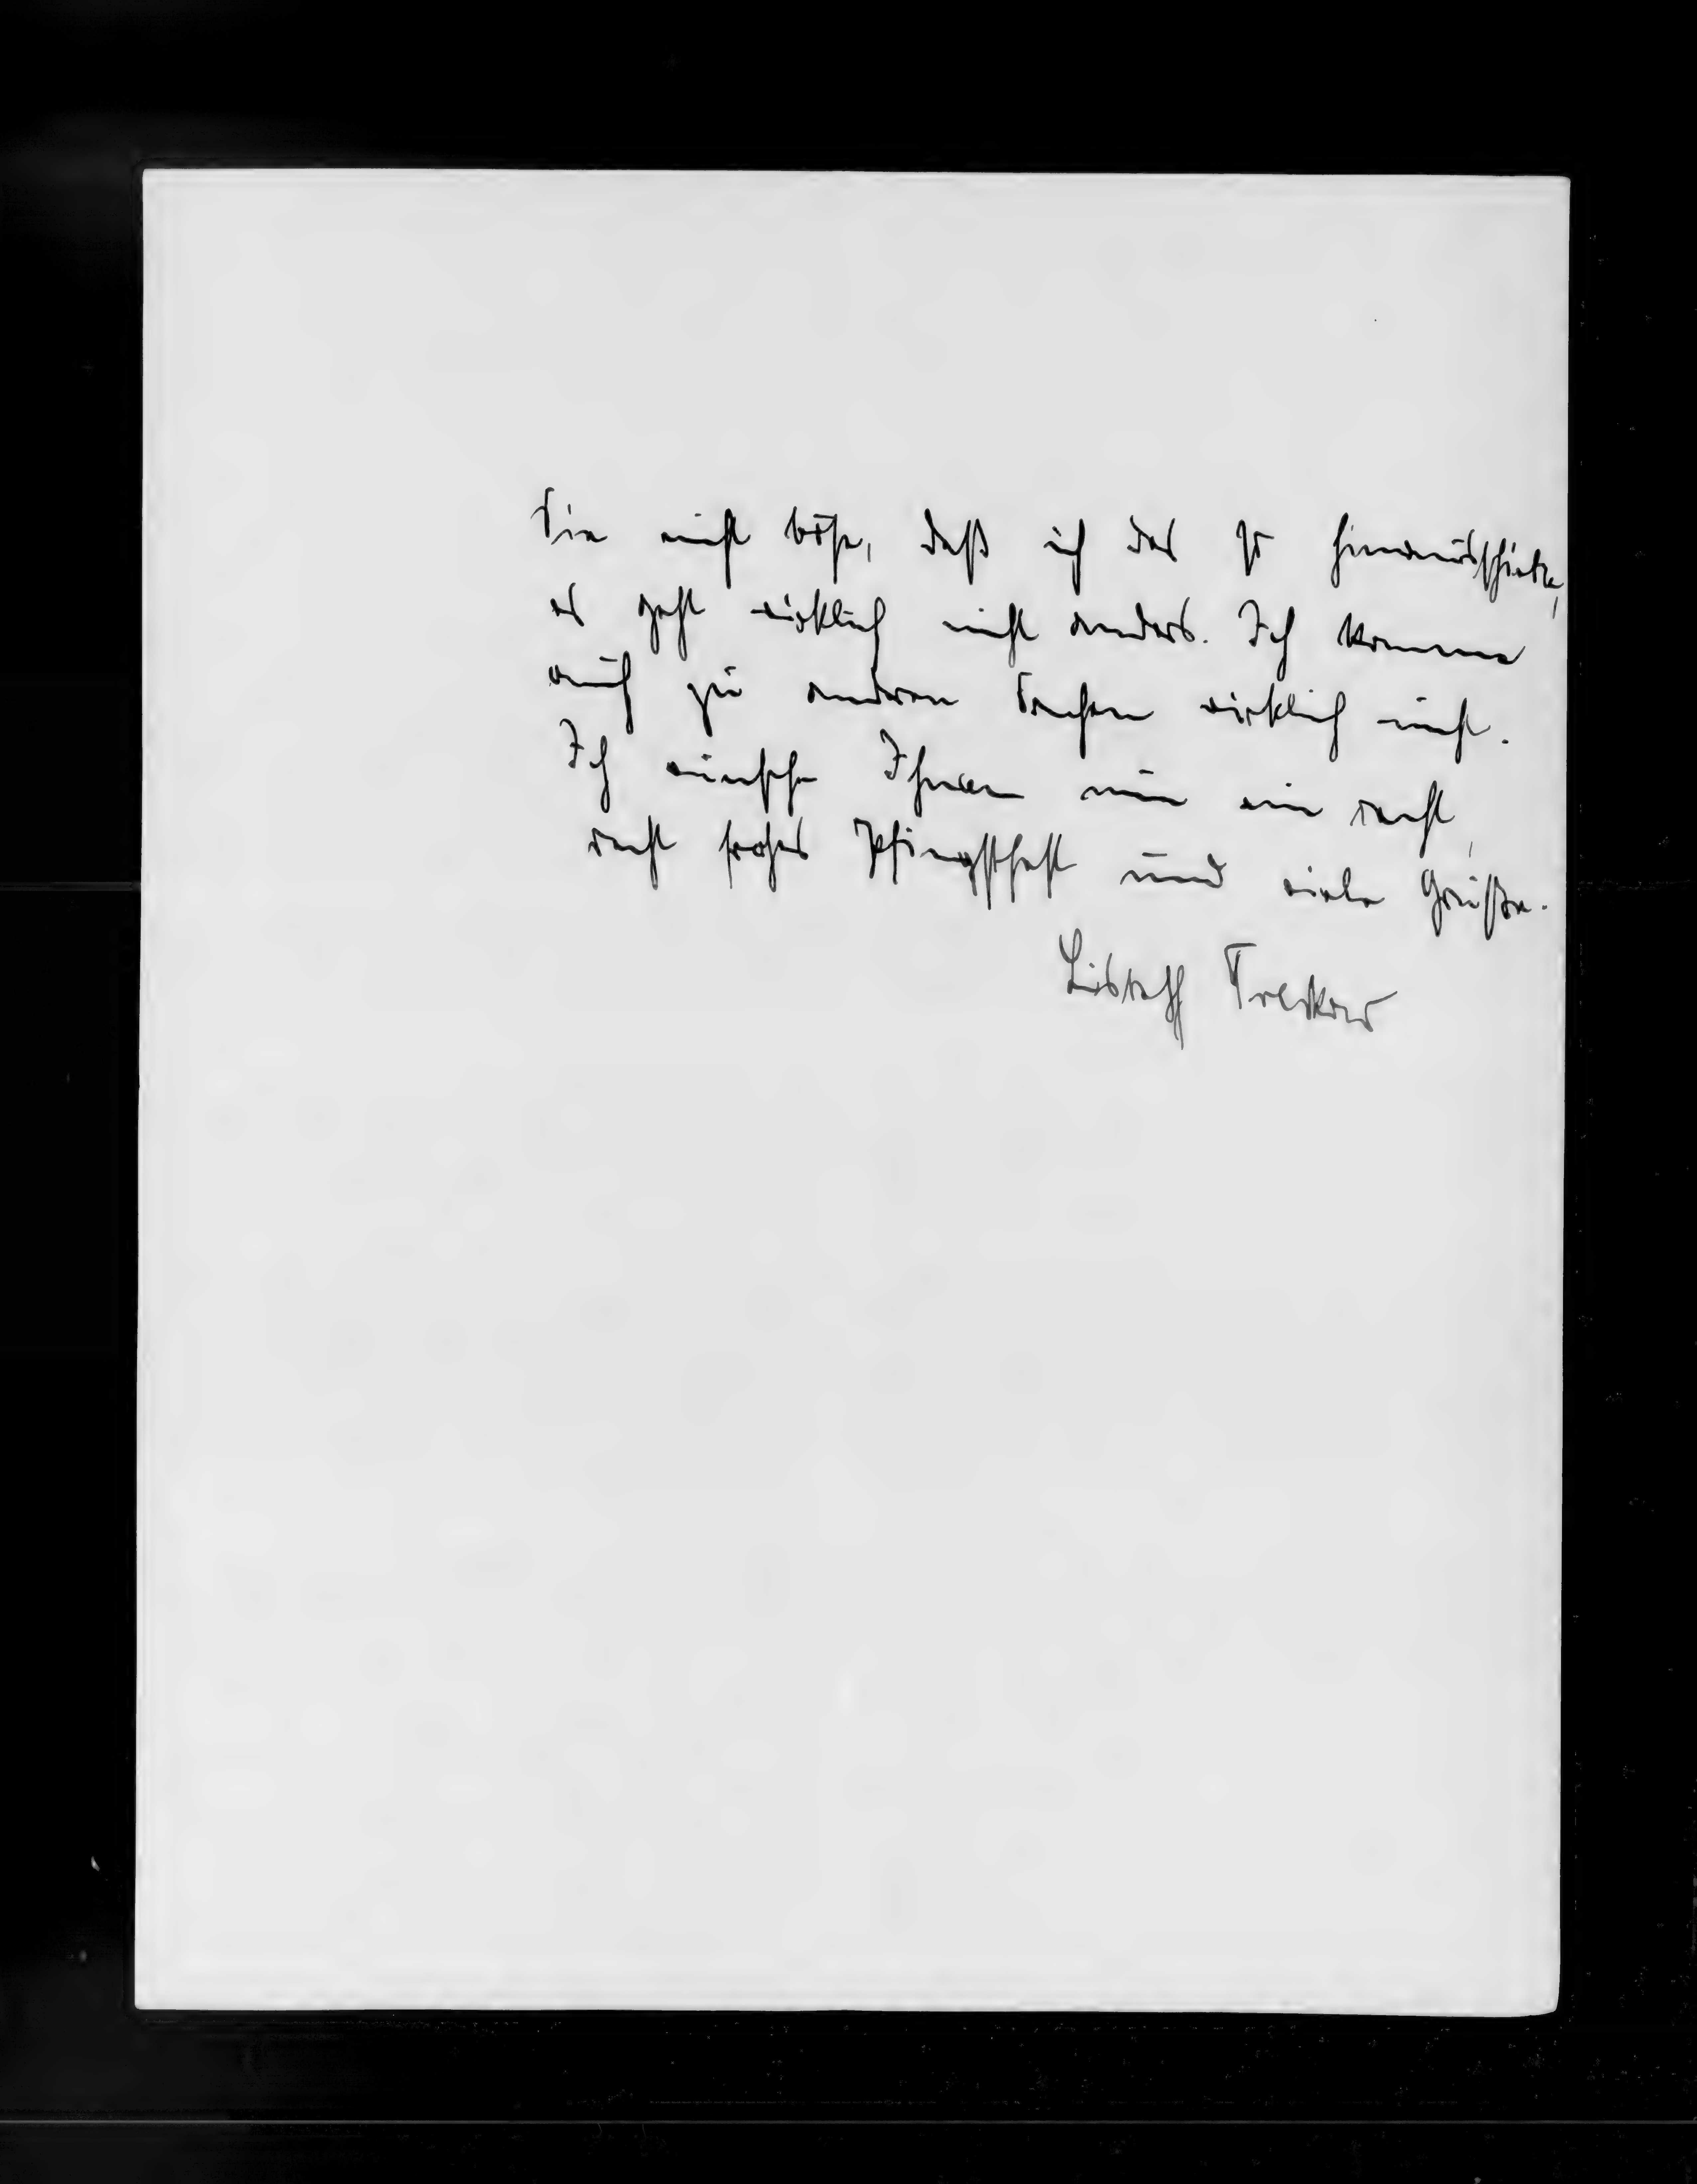 Sie nicht böse, daß ich das so hinausschiebe,
es geht wirklich nicht anders. Ich komme
auch zu anderen Sachen wirklich nicht.
Ich wünsche Ihnen nun ein recht,
recht frohes Pfingstfest und viele Grüße.
Treskow